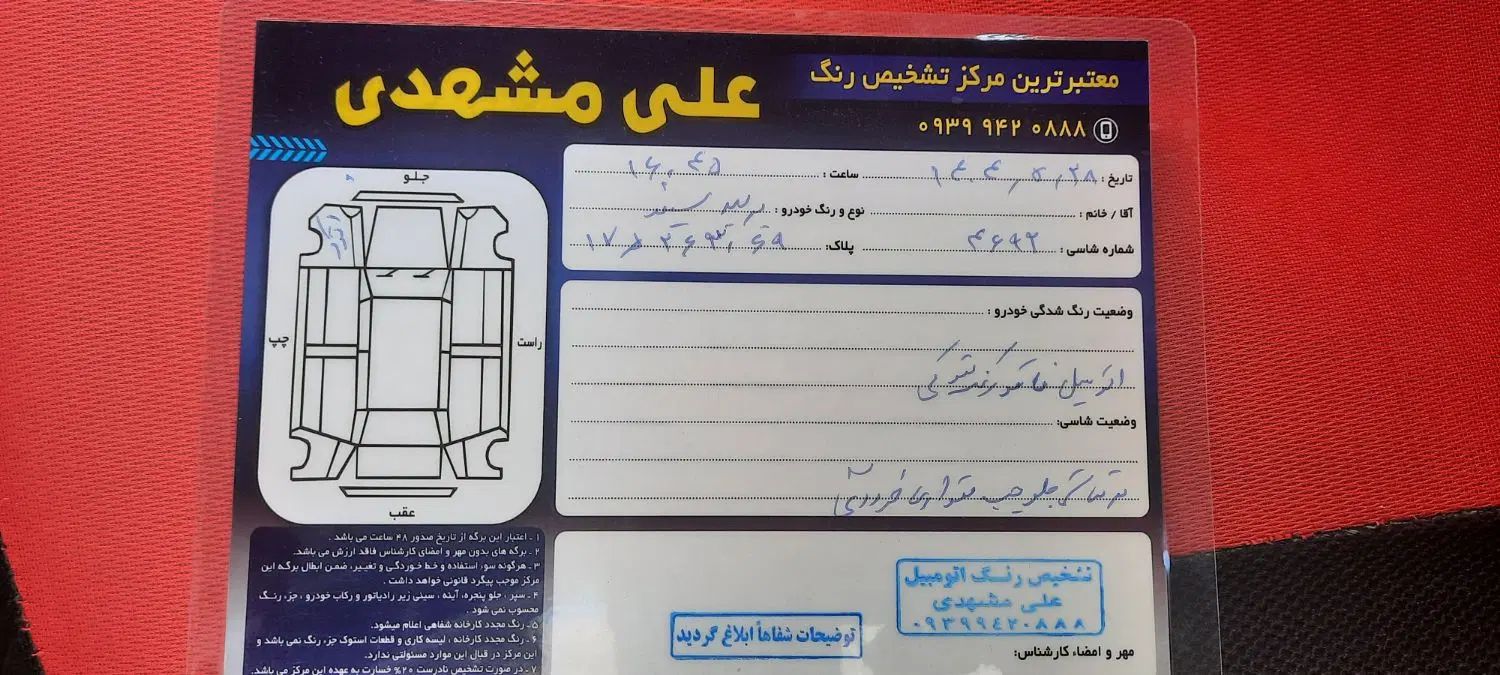 علی مشهدی
معتبرترین مرکز تشخیص رنگ
۰۹۳۹ ۹۴۲ ۰۸۸۸
تاریخ : ۱۴۰۴,۵,۲۸ ساعت : ۱۶,۴۵
آقا / خانم : نوع و رنگ خودرو : سفید
شماره شاسی : ۴۶۹۲ پلاک:
وضعیت رنگ شدگی خودرو :
اتومبیل فاقد رنگ
وضعیت شاسی:
سرشاسی جلو چپ مقداری خوردگی
جلو
چپ
راست
عقب
۱ ـ اعتبار این برگه از تاریخ صدور ۴۸ ساعت می باشد .
۲ ـ برگه های بدون مهر و امضای کارشناس فاقد ارزش می باشد.
۳ ـ هرگونه سوء استفاده و خط خوردگی و تغییر، ضمن ابطال برگه این
مرکز موجب پیگرد قانونی خواهد داشت .
۴ ـ سپر ، جلو پنجره، آینه ، سینی زیر رادیاتور و رکاب خودرو ، جزء رنگ
محسوب نمی شود .
۵ ـ رنگ مجدد کارخانه شفاهی اعلام میشود.
۶ ـ رنگ مجدد کارخانه ، لیسه کاری و قطعات استوک جزء رنگ نمی باشد و
این مرکز در قبال این موارد مسئولتی ندارد.
۷ ـ در صورت تشخیص نادرست ۲۰% خسارت به عهده این مرکز می باشد.
تشخیص رنگ اتومبیل
علی مشهدی
۰۹۳۹۹۴۲۰۸۸۸
توضیحات شفاهاً ابلاغ گردید
مهر و امضاء کارشناس: